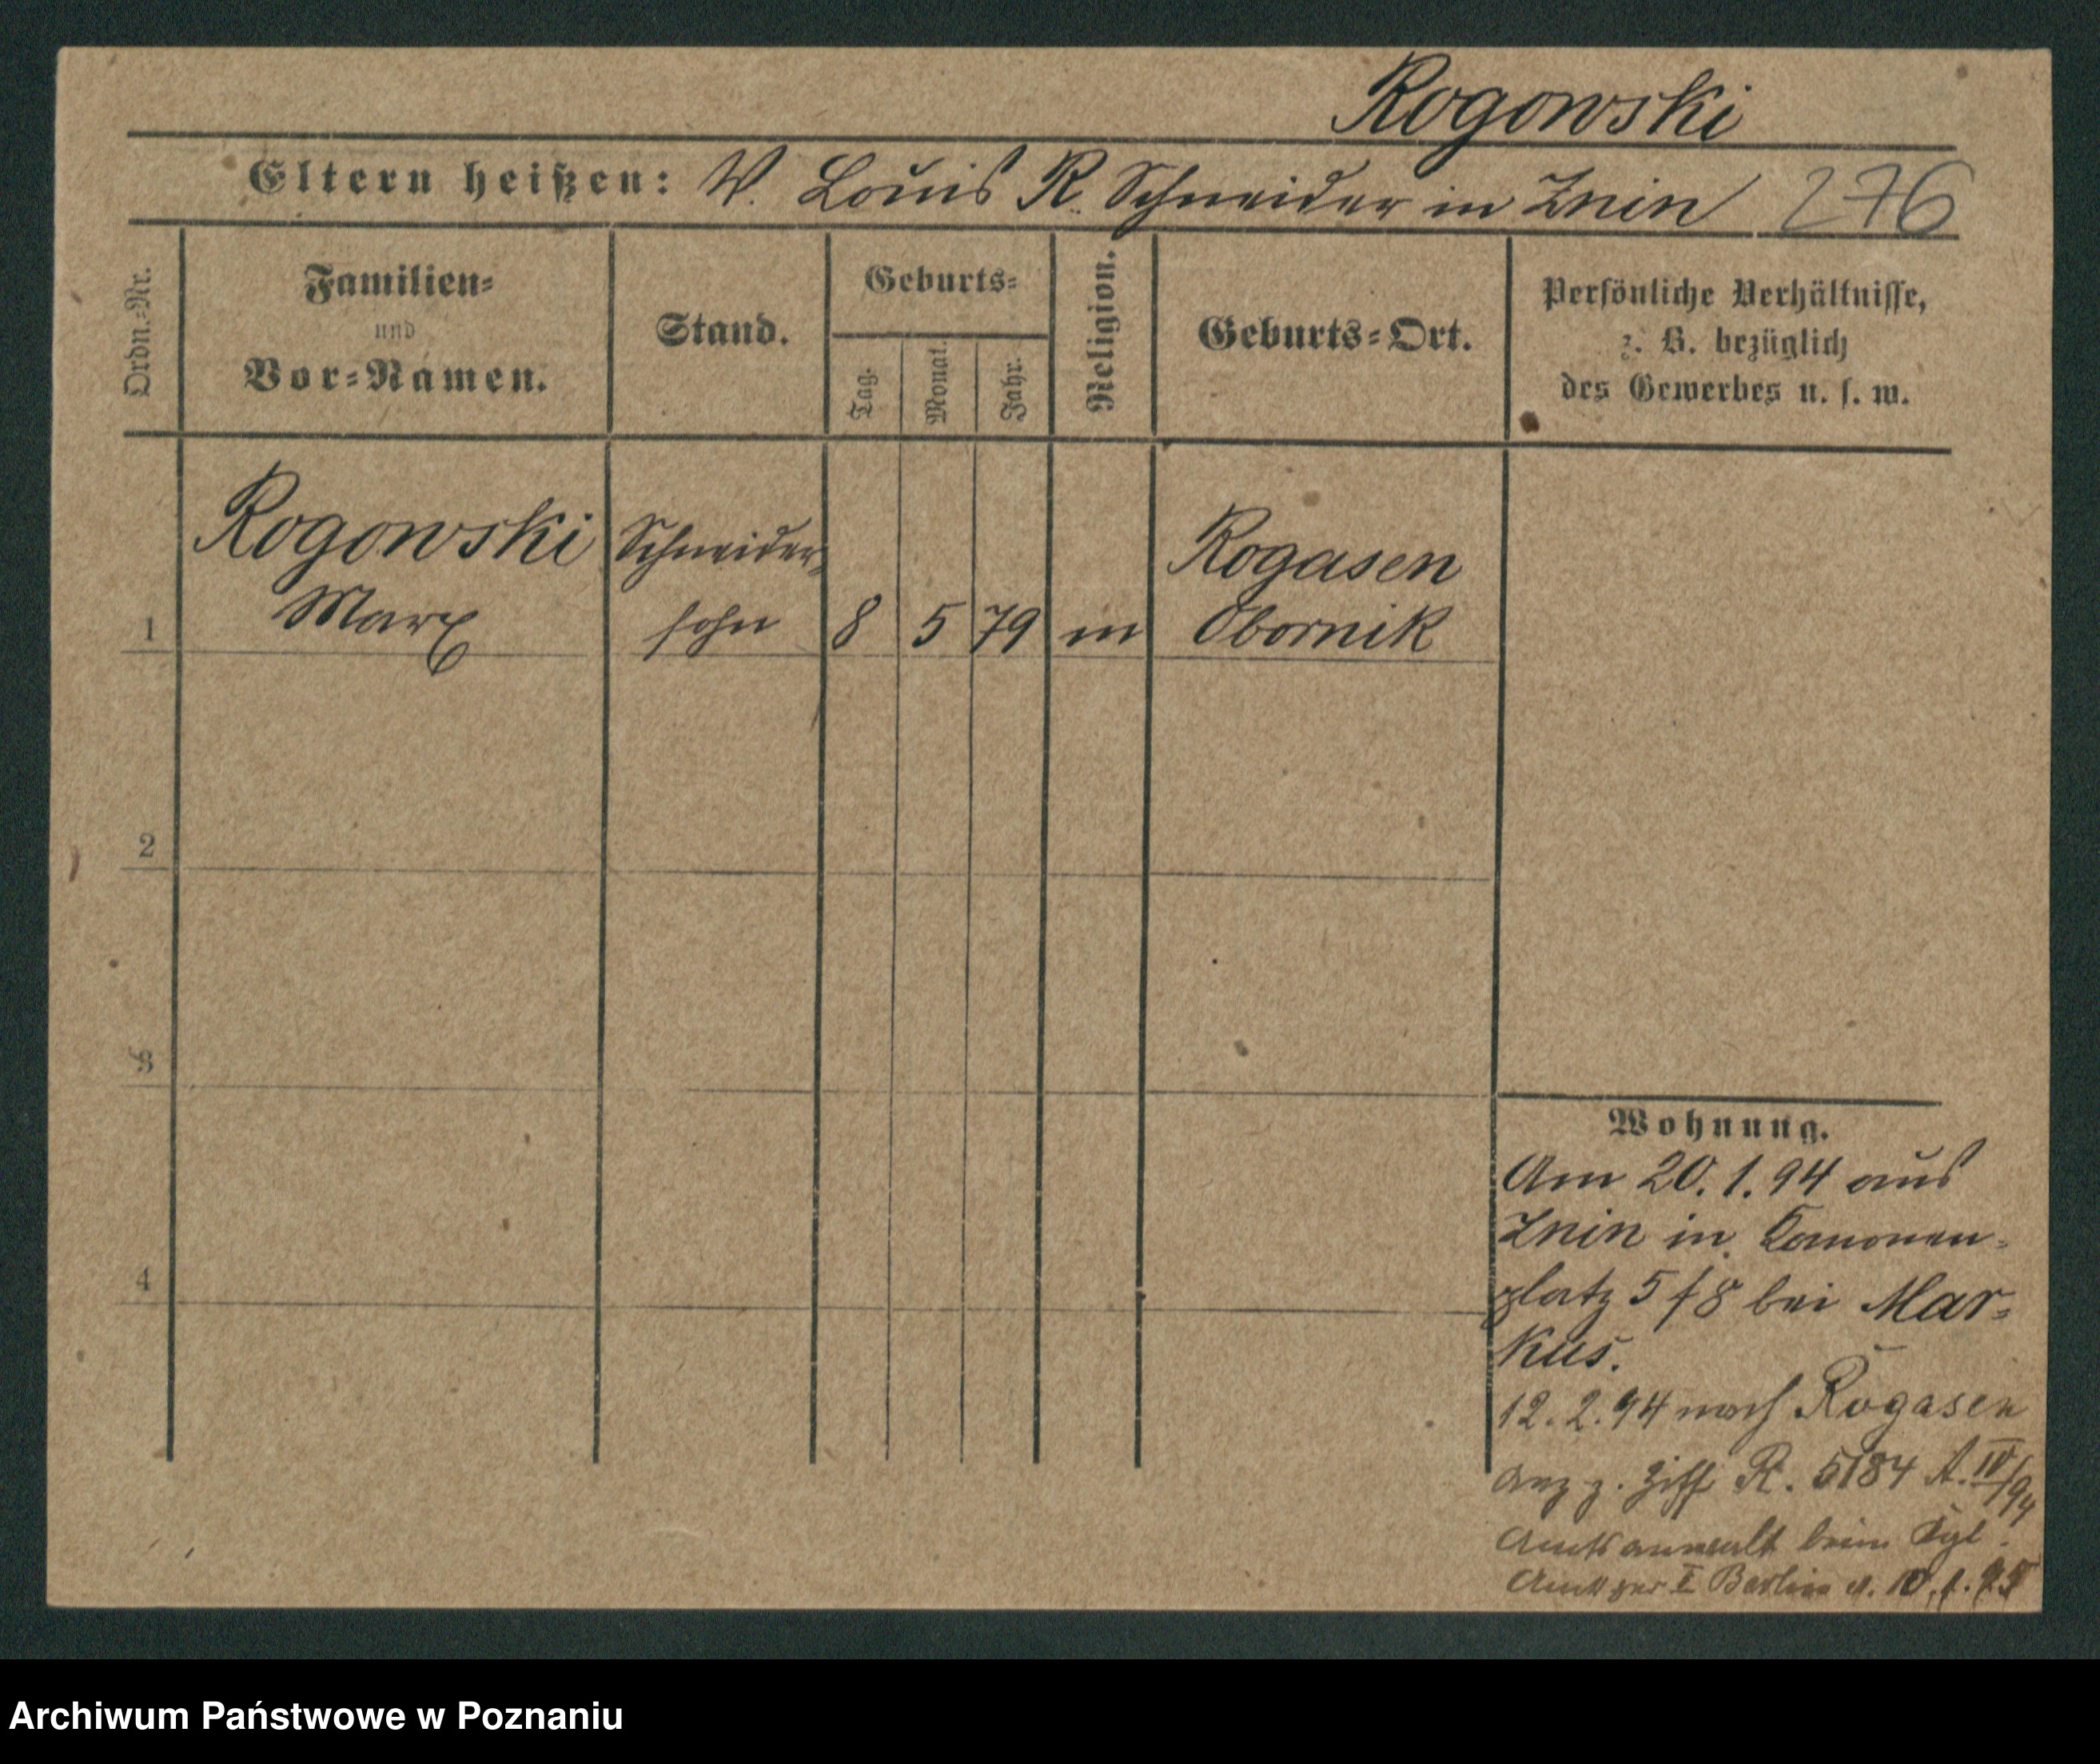 Rogowski
Eltern heißen: V. Louis R. Schneider in Znin 276
Ordn.-Nr.
Familien- und Vor-Namen.
Stand.
Geburts-
Tag.
Monat.
Jahr.
Religion.
Geburts-Ort.
Persönliche Verhältnisse,
z. B. bezüglich
des Gewerbes u. s. w.
Rogowski Schneider- Rogasen
1 Marx sohn 8 5 79 m Obornik
2
3
4
Wohnung.
Am 20.1.94 aus
Znin in Kanonen-
platz 5 f 8 bei Mar-
kus.
12.2.94 nach Rogasen
Anz z. Ziff R. 5184 A. IV/94
Amtsanwalt beim Kgl.
Amtsger I Berlin
Archiwum Państwowe w Poznaniu